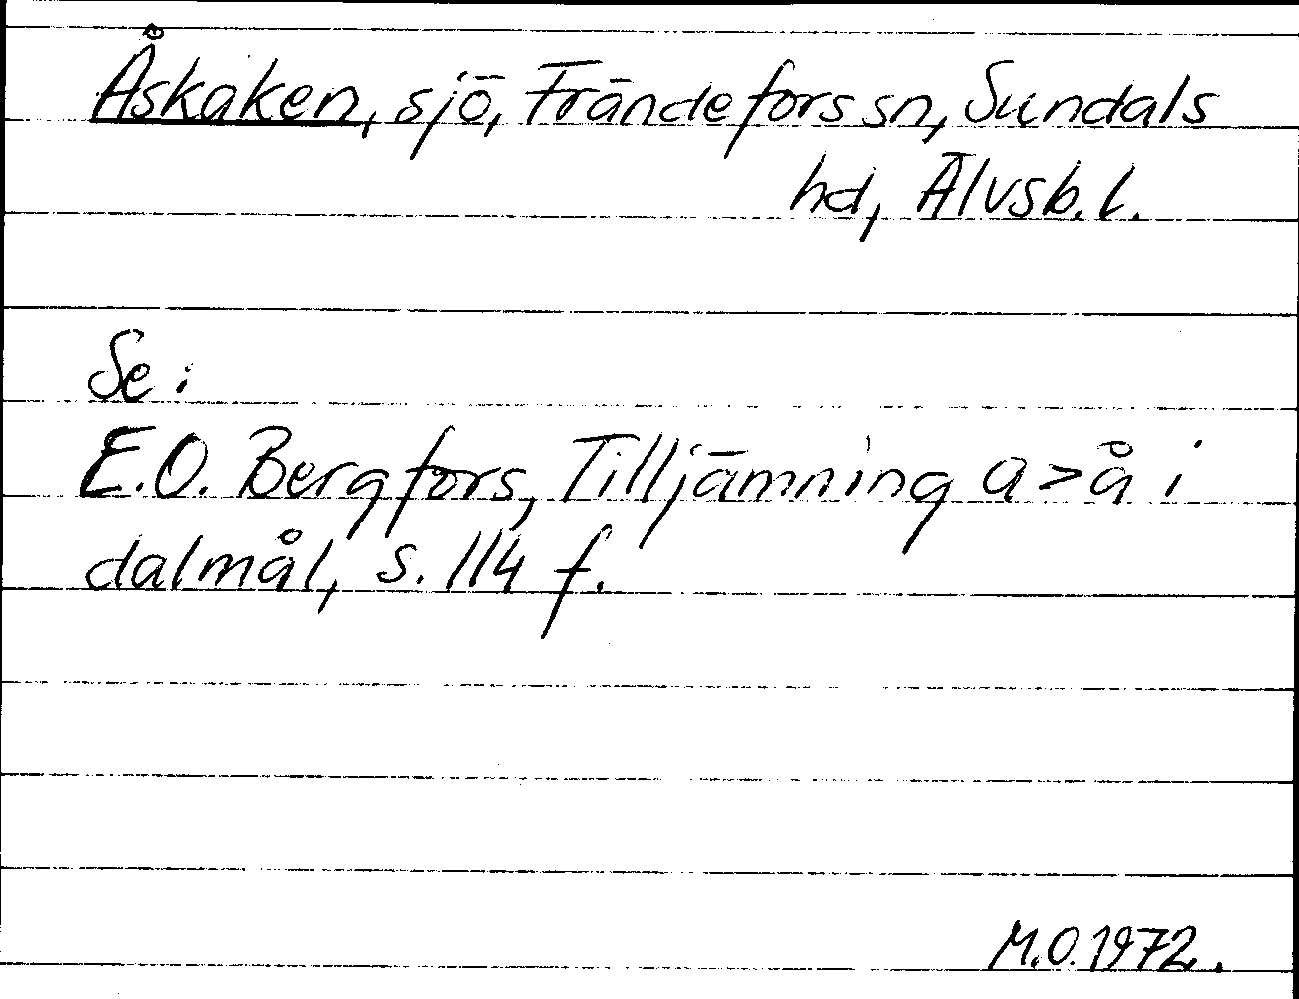 Åskaken, sjö, Frändefors sn, Sundals
hd, Älvsb. l.
Se:
E.O. Bergfors, Tilljämning a > å i
dalmål, s. 114 f.
M.O. 1972.